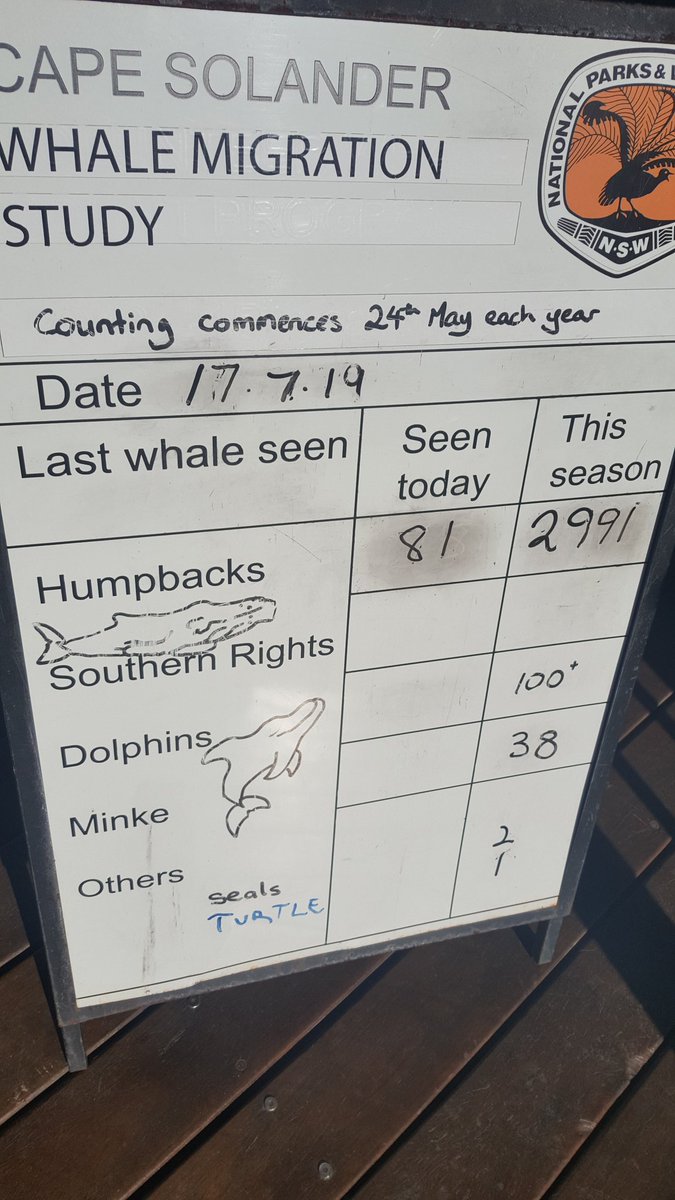 CAPE SOLANDER
WHALE MIGRATION
STUDY
NATIONAL PARKS &
N·S·W
Counting commences 24th May each year
Date 17.7.19
Last whale seen
Seen today
This season
Humpbacks 81 2991
Southern Rights
Dolphins 100+
Minke 38
Others
seals 2
TURTLE 1